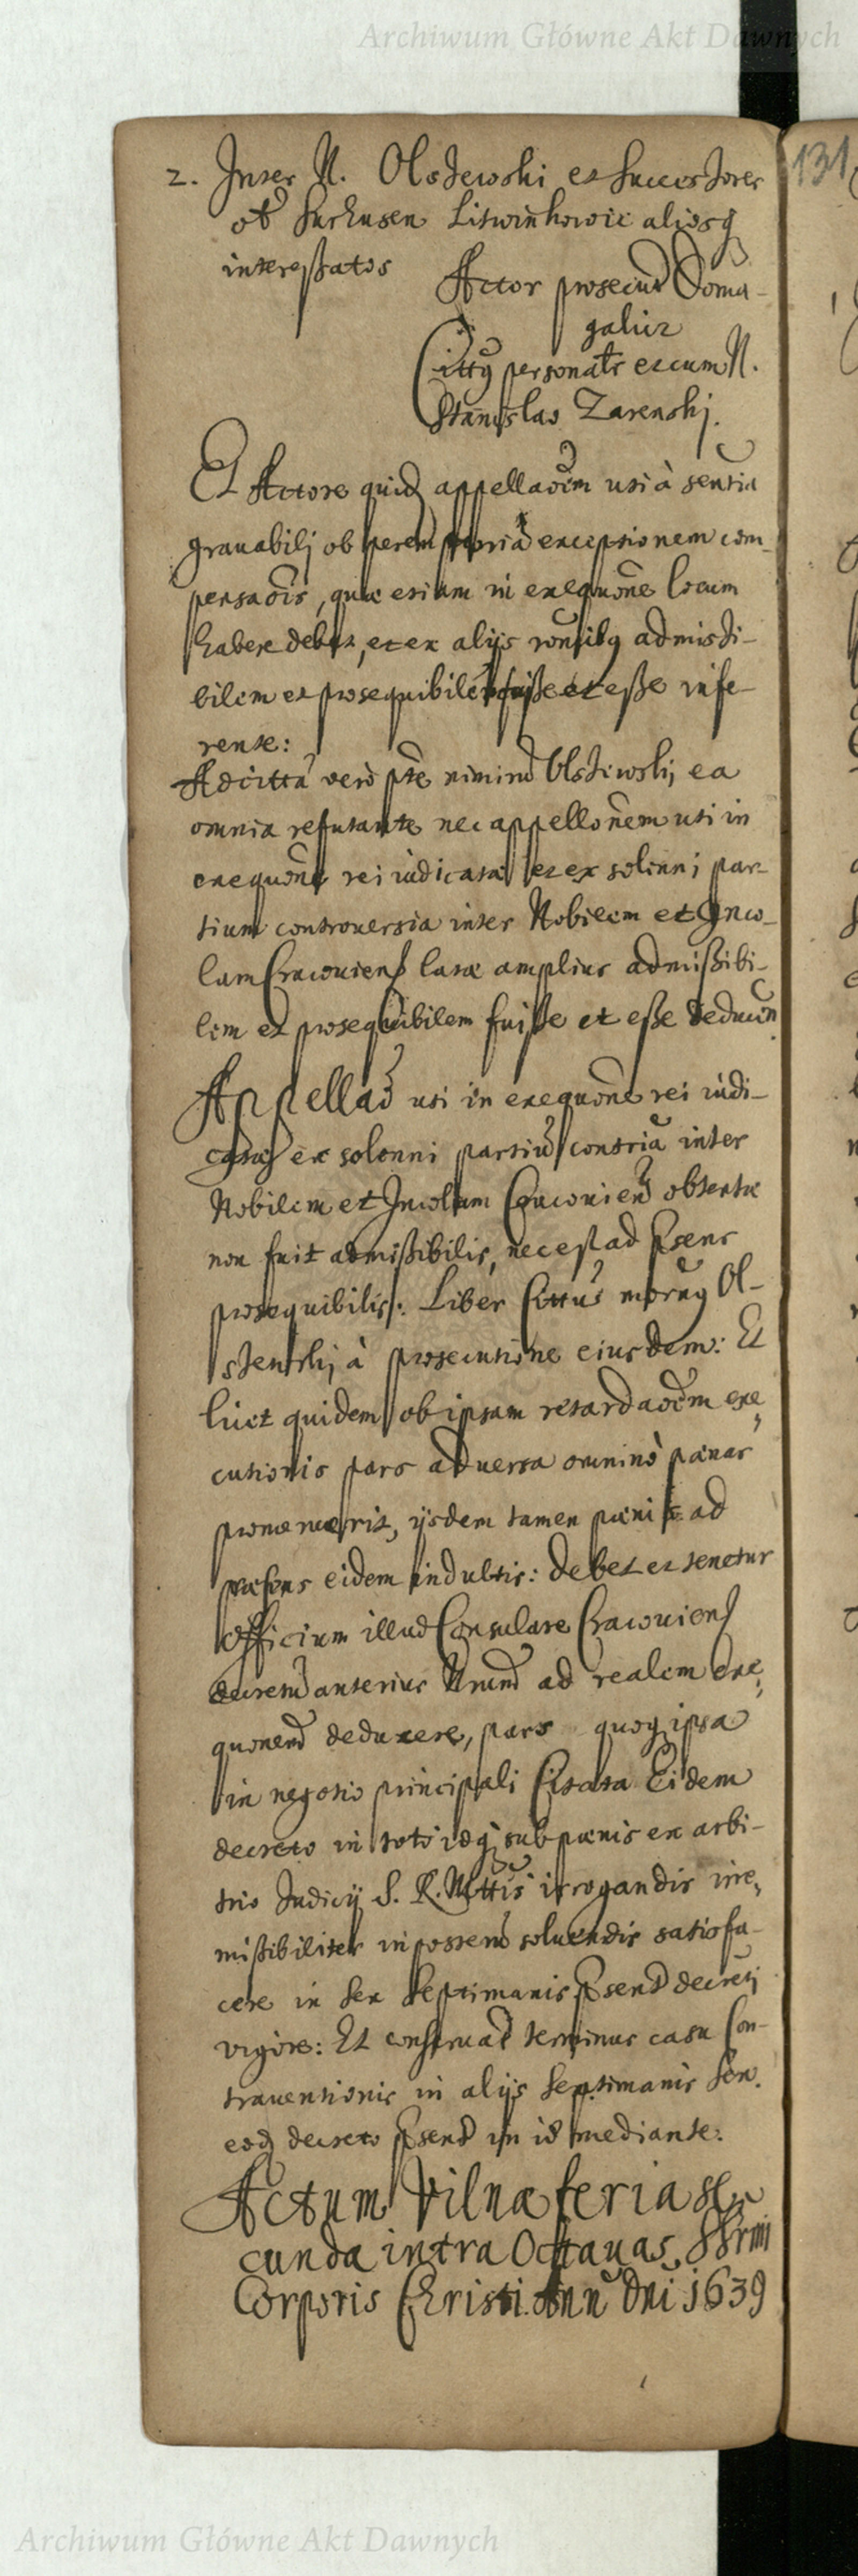 Archiwum Główne Akt Dawnych
131
2. Inter N. Olszewski et Successores
interessatos
Actor prosecut Doma-
galicz
Citty personalr et cum N.
Stanislao Zarenski.
Et Actore quid appellaoem uti à sentia
grauabilj ob peremptoriã exceptionem com-
pensaõis, quæ etiam in exequõne locum
habere debet, et ex alijs rõnibq admissi-
bilem et prosequibilem fuisse et esse infe-
rente:
Acitta verò pte nimirũ Olszewskj ea
omnia refutante nec appellonem uti in
exequõne rei iudicatæ et ex solenni par-
tium controuersia inter Nobilem et Inco-
lam Cracouiens latæ amplius admissibi-
lem et prosequibilem fuisse et esse deducen
Appellaõ uti in exequõne rei iudi-
catæ ex solenni partiũ contriã inter
Nobilem et Incolam Cracouien obtentæ
non fuit admissibilis, nec est ad psens
prosequibilis: Liber Cittus Ol-
à prosecutione eiusdem: Et
licet quidem ob ipsam retardaoem exe,
cutionis pars aduersa omninò pænas
promeruerit, ijsdem tamen pænis ad
præsens eidem indultis: debet et tenetur
officium illud Consulare Cracouiens
decretũ anterius Nrum ad realem exe,
quonem deducere, pars quoq ipsa
in negotio principali Citata Eidem
decreto in toto idq sub pænis ex arbi-
trio Iudicij S. R. Mttis irrogandis irre,
missibiliter soluendis satisfa-
cere in sex Septimanis psent decreti
vigore: Et conseruat terminus casu Con-
trauentionis in alijs Septimanis sex.
eoq decreto psent in id mediante.
Actum Vilnæ feria se,
cunda intra Octauas SSrmi
Corporis Christi. Ann Dni 1639
Archiwum Główne Akt Dawnych